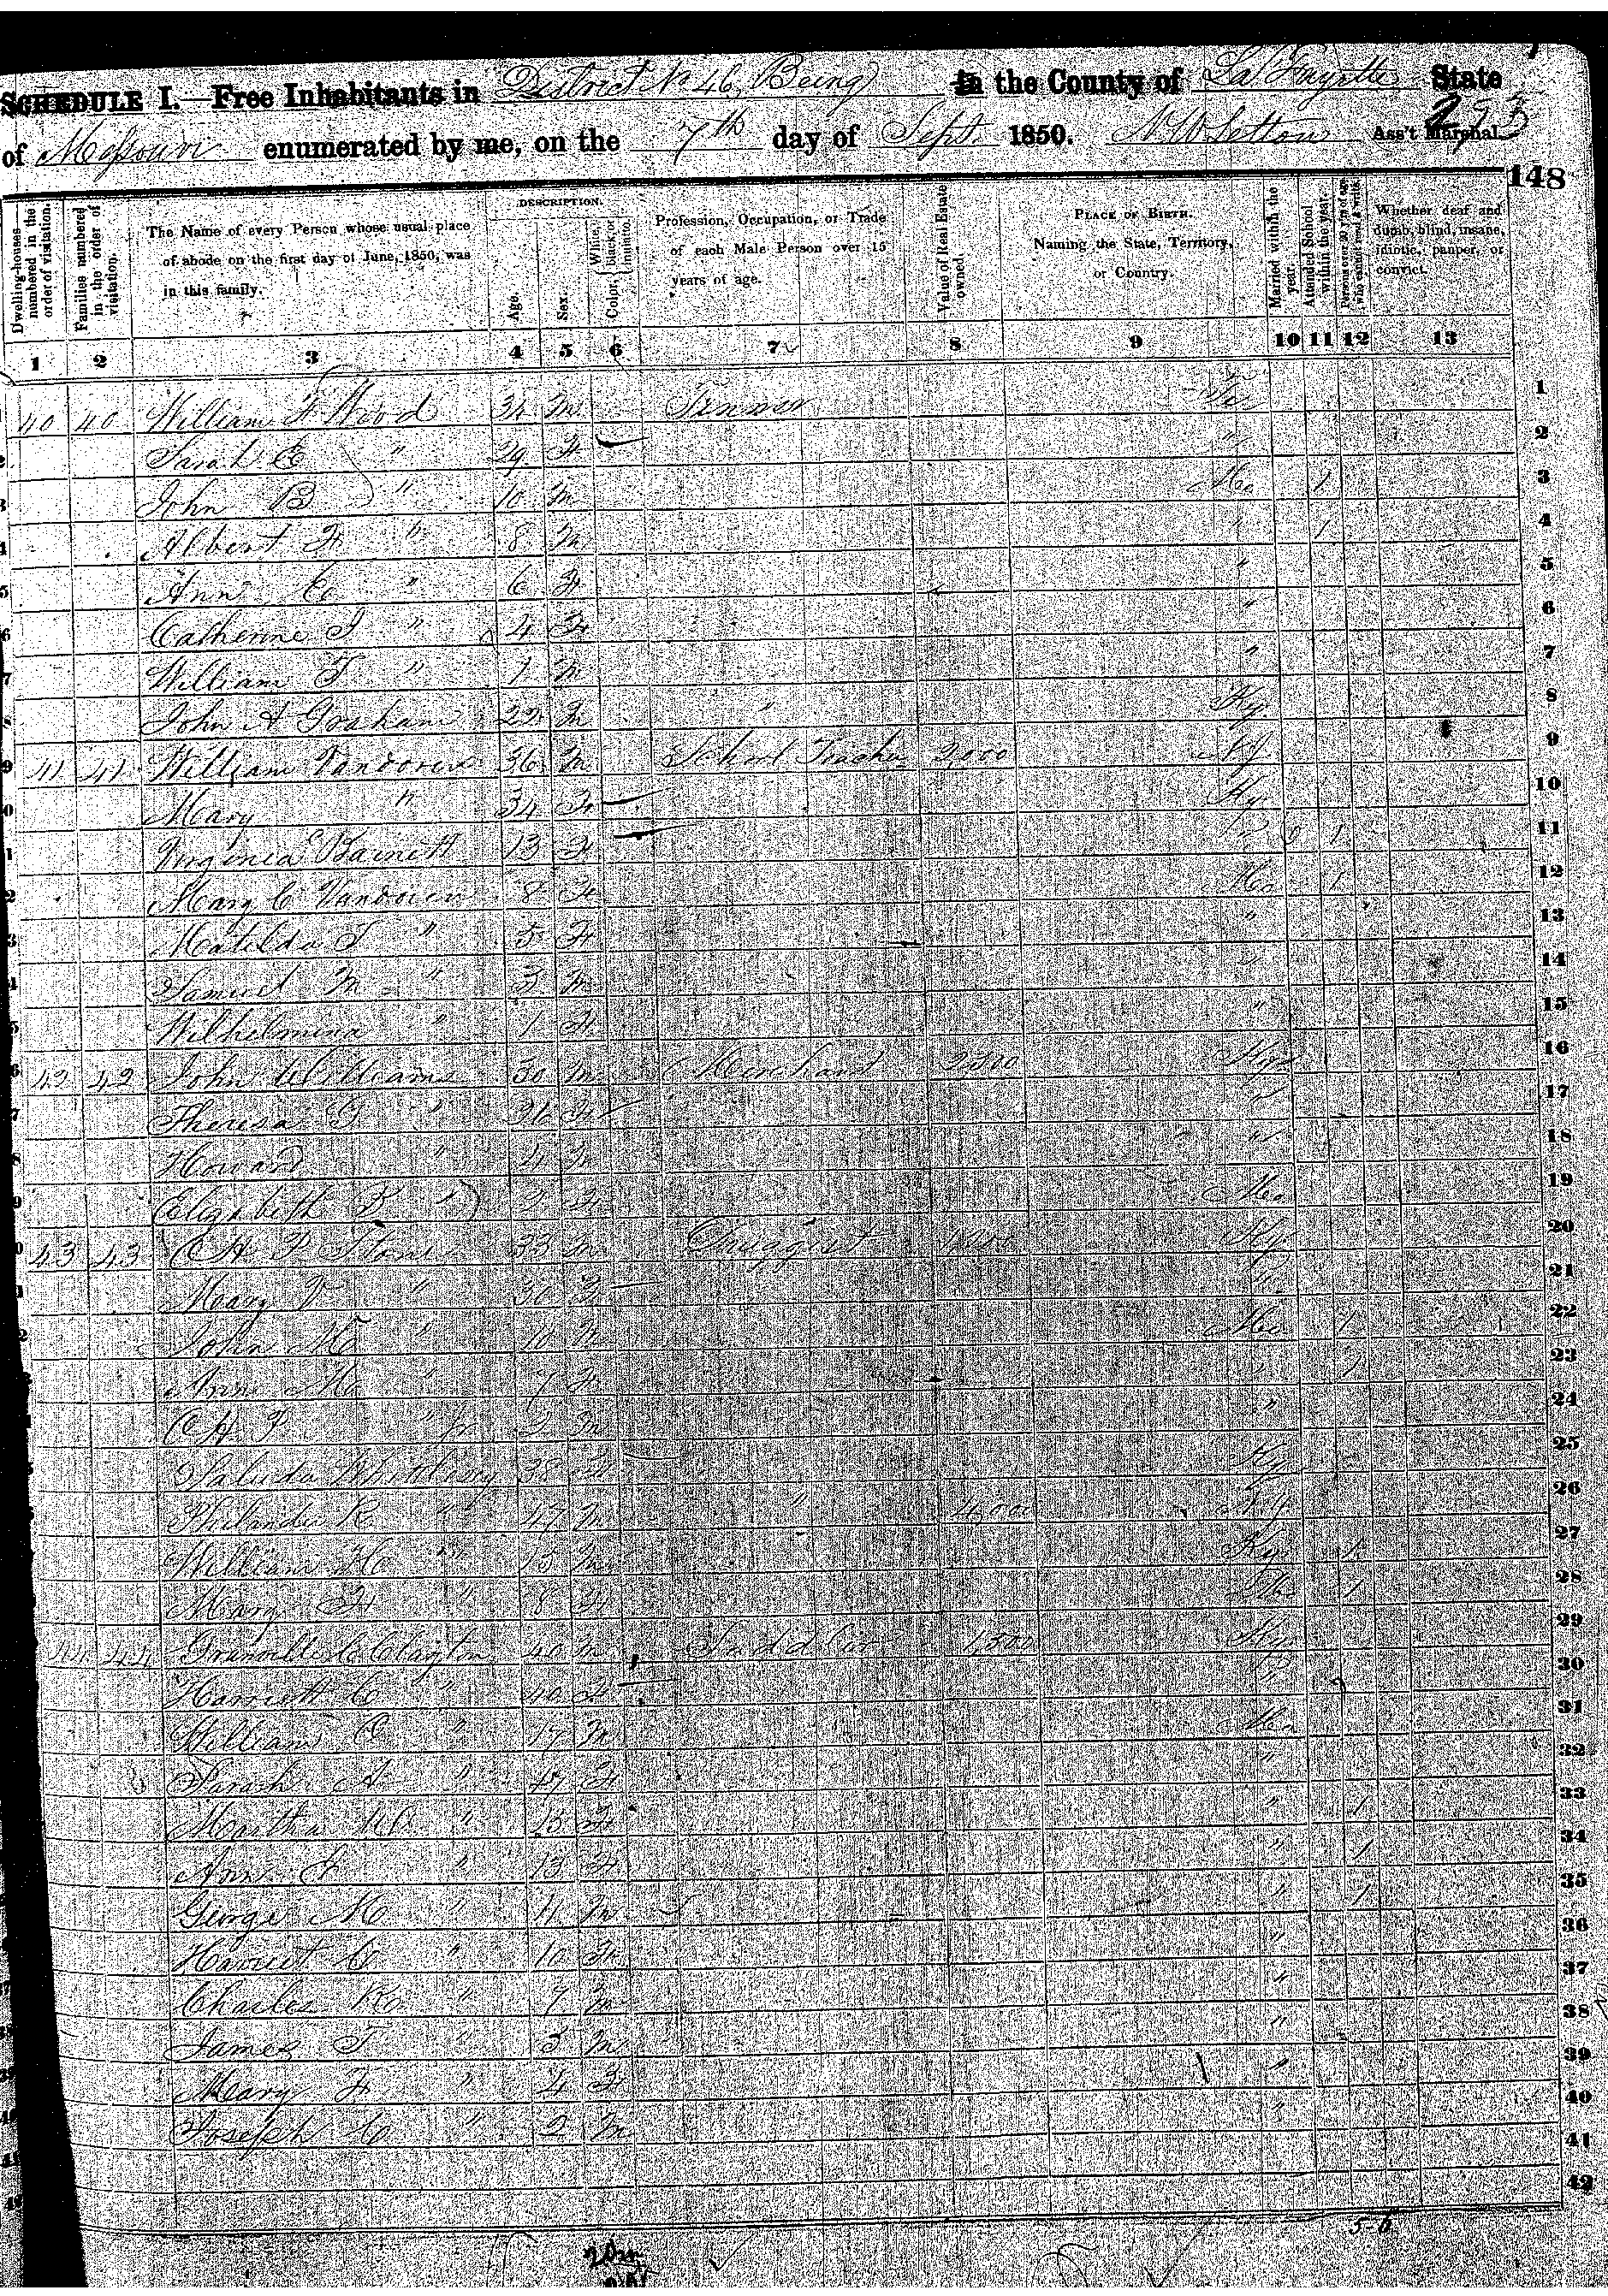 SCHEDULE I. Free Inhabitants in District No 46, Being in the County of La Fayette State
of Missouri enumerated by me, on the 7th day of Sept. 1850. Ass't Marshal.
293
148
Dwelling-houses numbered in the order of visitation.
Families numbered in the order of visitation.
The Name of every Person whose usual place of abode on the first day of June, 1850, was in this family.
DESCRIPTION.
Age.
Sex.
Color, White, black or mulatto.
Profession, Occupation, or Trade of each Male Person over 15 years of age.
Value of Real Estate owned.
PLACE OF BIRTH. Naming the State, Territory, or Country.
Married within the year.
Attended School within the year.
Persons over 20 y'rs of age who cannot read & write.
Whether deaf and dumb, blind, insane, idiotic, pauper, or convict.
1 2 3 4 5 6 7 8 9 10 11 12 13
40 40 William F Wood 34 M Tinner 1
Sarah E " 29 F " 2
John B " 10 M Mo 1 3
Albert F " 8 M " 1 4
Ann E " 6 F " 5
Catherine J " 4 F " 6
William T " 1 M " 7
John A Graham 22 M " Ky 8
41 41 William Vandoren 36 M School Teacher 2,000 N J 9
Mary " 34 F Ky 10
Virginia Barnett 13 F 11
Mary C Vandoren 8 F Mo 1 12
Matilda T " 5 F " 13
Samuel M " 3 M " 14
Wilhelmina " 1 F " 15
42 42 John Williams 30 M Merchant Ky 16
Theresa " F " 17
Howard " 4 M " 18
Elizabeth " 2 F Mo 19
43 43 C H P Stone 33 M Druggist Ky 20
Mary " 30 F " 21
John " 10 M Mo 1 22
Ann " 7 F " 1 23
" jr 2 M " 24
38 F Ky 25
" 47 M " 4000 26
William H " 15 M Ky 1 27
Mary F " 8 F Mo 1 28
44 44 Granville C Clayton 40 M Saddler 1500 Ky 29
Harriett C " 40 F 30
William C " 17 M Mo 31
Sarah A " F " 32
Martha " 15 F " 1 33
Ann E " 13 F " 1 34
George M " 11 M " 1 35
Harriet C " 10 F " 36
Charles " 7 M " 37
James T " 5 M " 38
Mary F " 4 F " 39
Joseph C " 2 M " 40
41
42
5-6